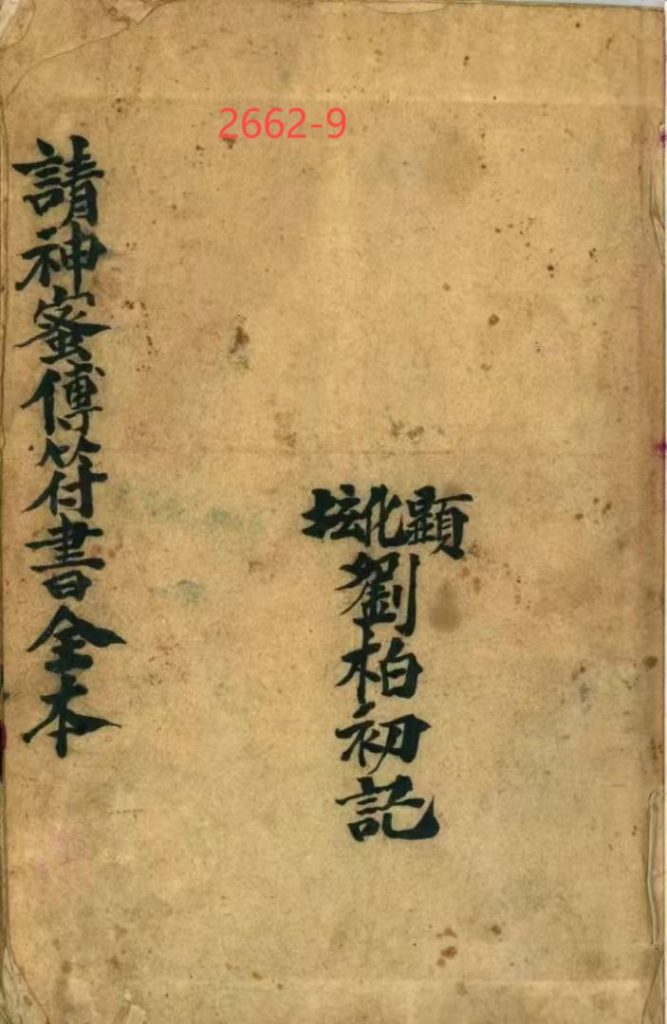 2662-9
請神蜜傳符書全本
顕化坛
劉柏初記